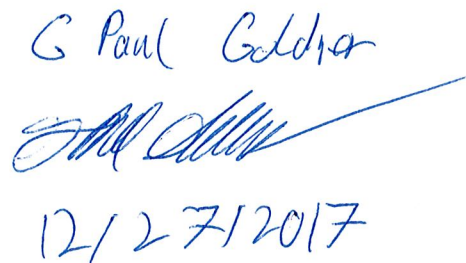 G Paul Goldner
12/27/2017